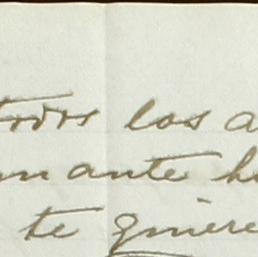 todos los a
mante h
te quiere